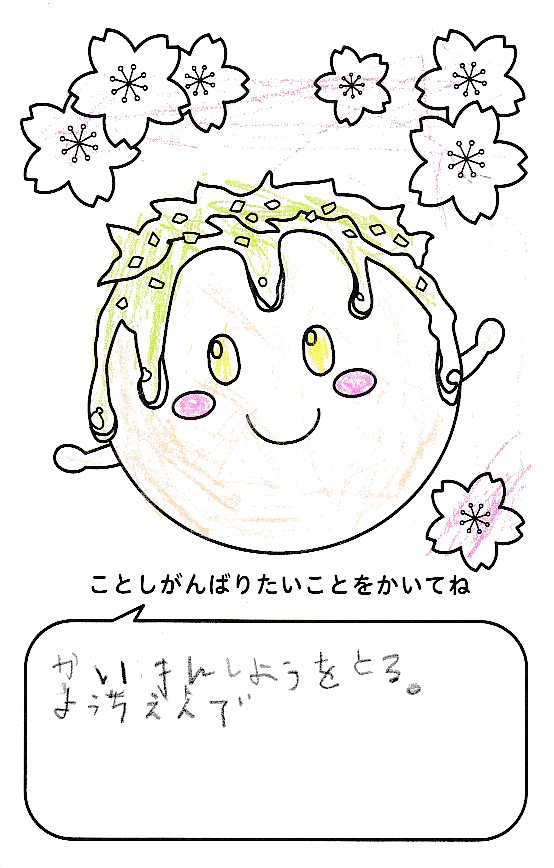 ことしがんばりたいことをかいてね
かいきんしようをとる。
ようちえんで